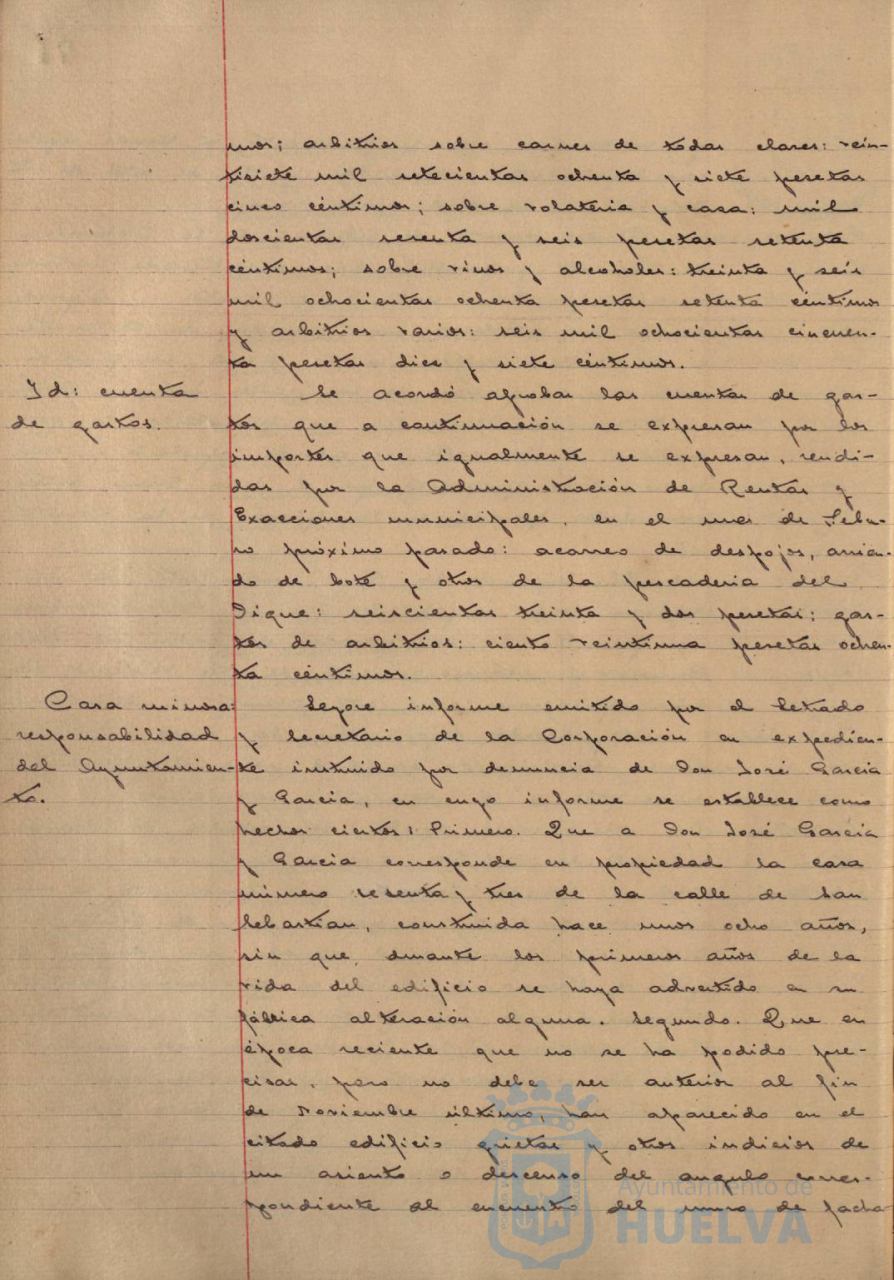 mos; arbitrios sobre carnes de todas clases: vein-
tisiete mil setecientas ochenta y siete pesetas
cinco céntimos; sobre volateria y casa: mil
doscientas sesenta y seis pesetas setenta
céntimos; sobre vinos y alcoholes: treinta y seis
mil ochocientas ochenta pesetas setenta céntimos
y arbitrios varios: seis mil ochocientas cincuen-
ta pesetas dies y siete céntimos.
Id: cuenta
de gastos.
Se acordó aprobar las cuentas de gas-
tos que a continuación se expresan por los
importes que igualmente se expresan, rendi-
das por la Administración de Rentas y
Exacciones municipales, en el mes de Febre-
ro próximo pasado: acarreo de despojos, arrien-
do de bote y otros de la pescaderia del
Dique: seiscientas treinta y dos pesetas; gas-
tos de arbitrios: ciento veintiuna pesetas ochen-
ta céntimos.
Casa minosa:
responsabilidad
del Ayuntamien-
to.
Leyose informe emitido por el Letrado
y Secretario de la Corporación en expedien-
te instruido por denuncia de Don José Garcia
y Garcia, en cuyo informe se establece como
hechos ciertos: Primero. Que a Don José Garcia
y Garcia corresponde en propiedad la casa
número sesenta y tres de la calle de San
Sebastian, construida hace unos ocho años,
sin que durante los primeros años de la
vida del edificio se haya advertido en su
fábrica alteración alguna. Segundo. Que en
época reciente que no se ha podido pre-
cisar, pero no debe ser anterior al fin
de Noviembre último, han aparecido en el
citado edificio grietas y otros indicios de
un asiento o descenso del angulo corres-
pondiente al encuentro del muro de facha-
Ayuntamiento de
HUELVA